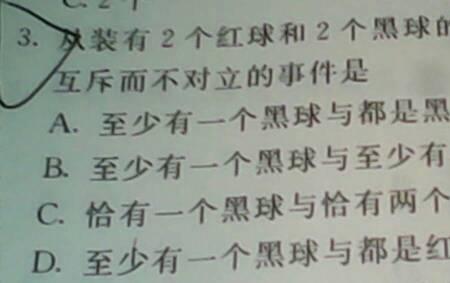 C. 2个
3. 从装有 2 个红球和 2 个黑球的
互斥而不对立的事件是
A. 至少有一个黑球与都是黑
B. 至少有一个黑球与至少有
C. 恰有一个黑球与恰有两个
D. 至少有一个黑球与都是红